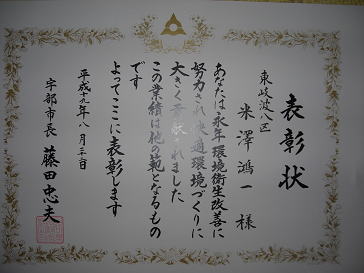 表彰状
東岐波八区
米澤鴻一様
あなたは永年環境衛生改善に
努力され快適環境づくりに
大きく貢献されました
この業績は他の範となるもの
です
よってここに表彰します
平成九年八月三日
宇部市長 藤田忠夫